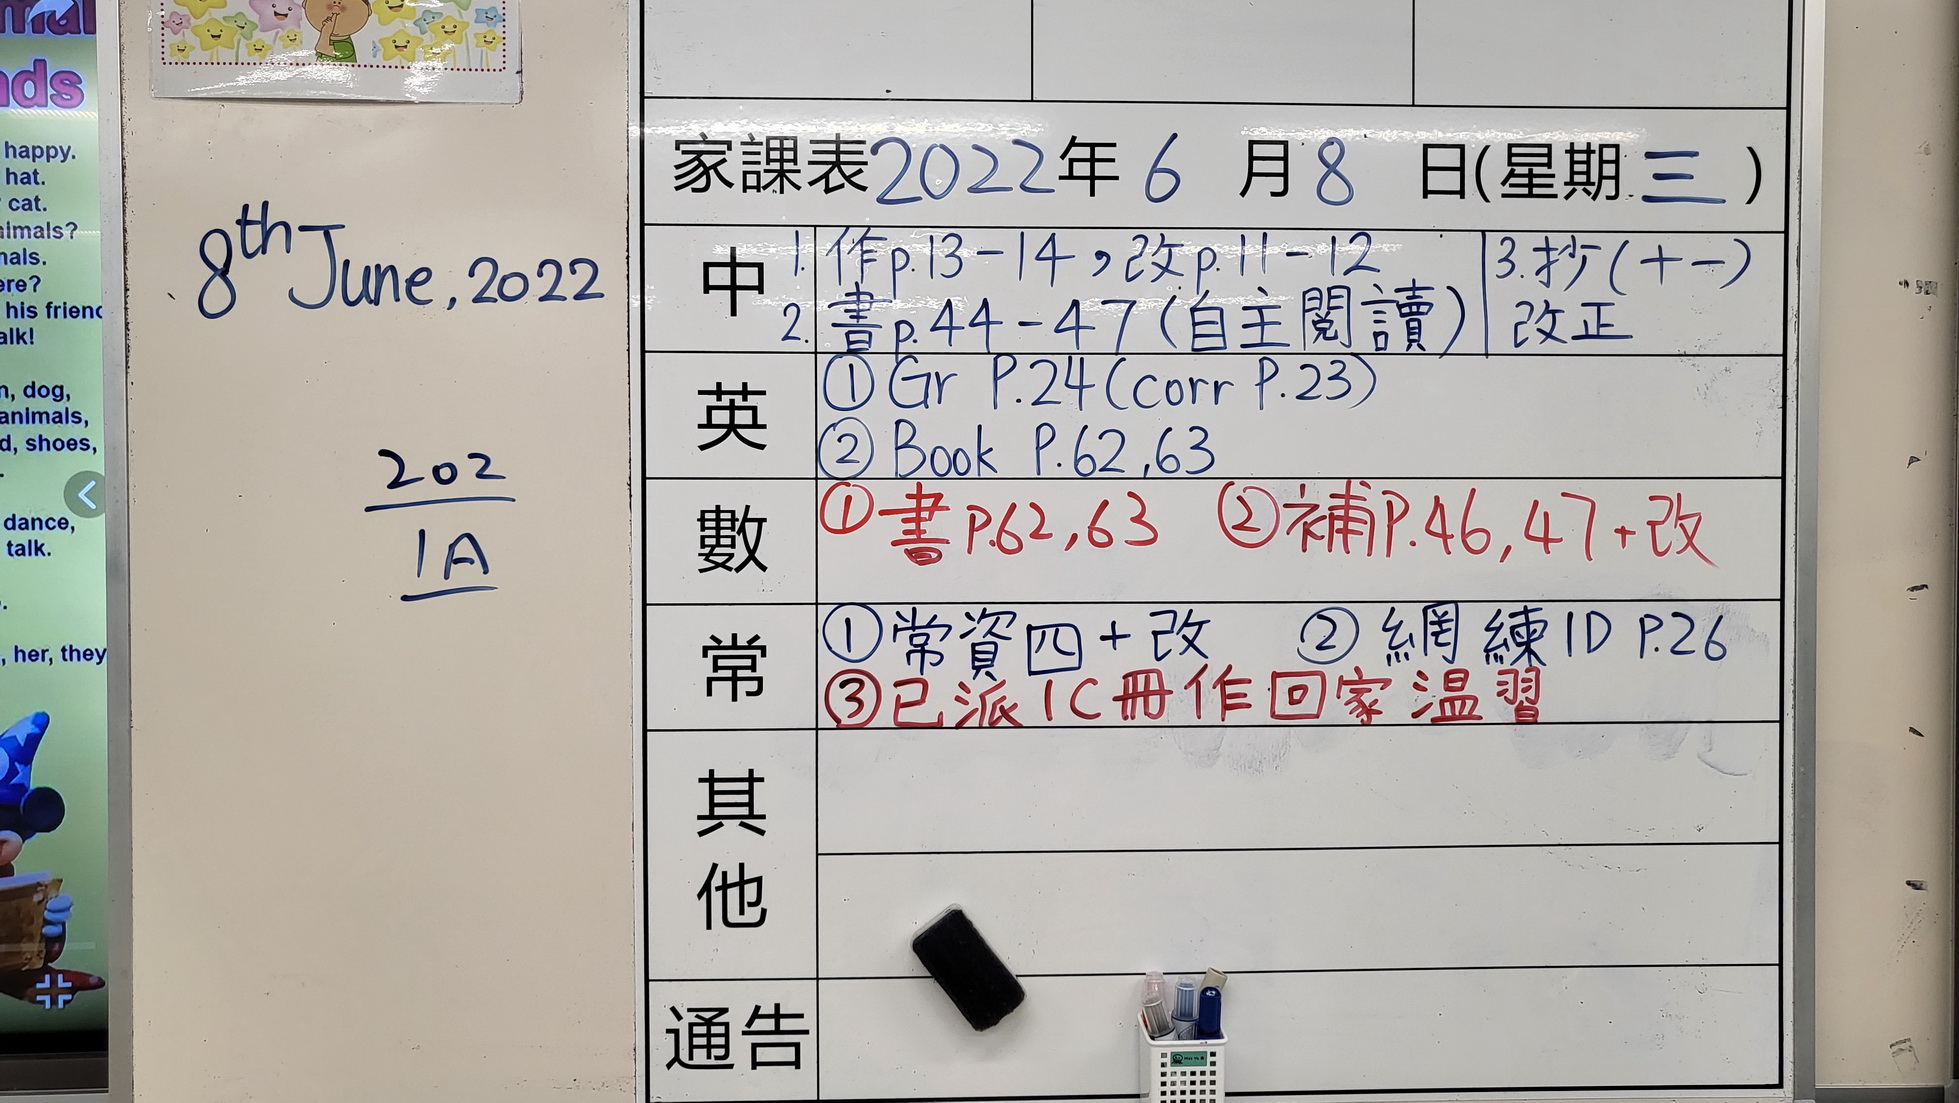 mal
nds
happy.
hat.
cat.
nimals?
mals.
ere?
his friend
alk!
n, dog,
animals,
d, shoes,
dance,
talk.
, her, they
8th June, 2022
202
1A
家課表2022年6月8日(星期三)
中
1. 作p.13-14，改p.11-12
2. 書p.44-47(自主閱讀)
3. 抄(十一)
改正
英
① Gr P.24(corr P.23)
② Book P.62,63
數
①書P.62,63 ②補P.46,47+改
常
①常資四+改 ②網練1D P.26
③已派1C冊作回家温習
其他
通告